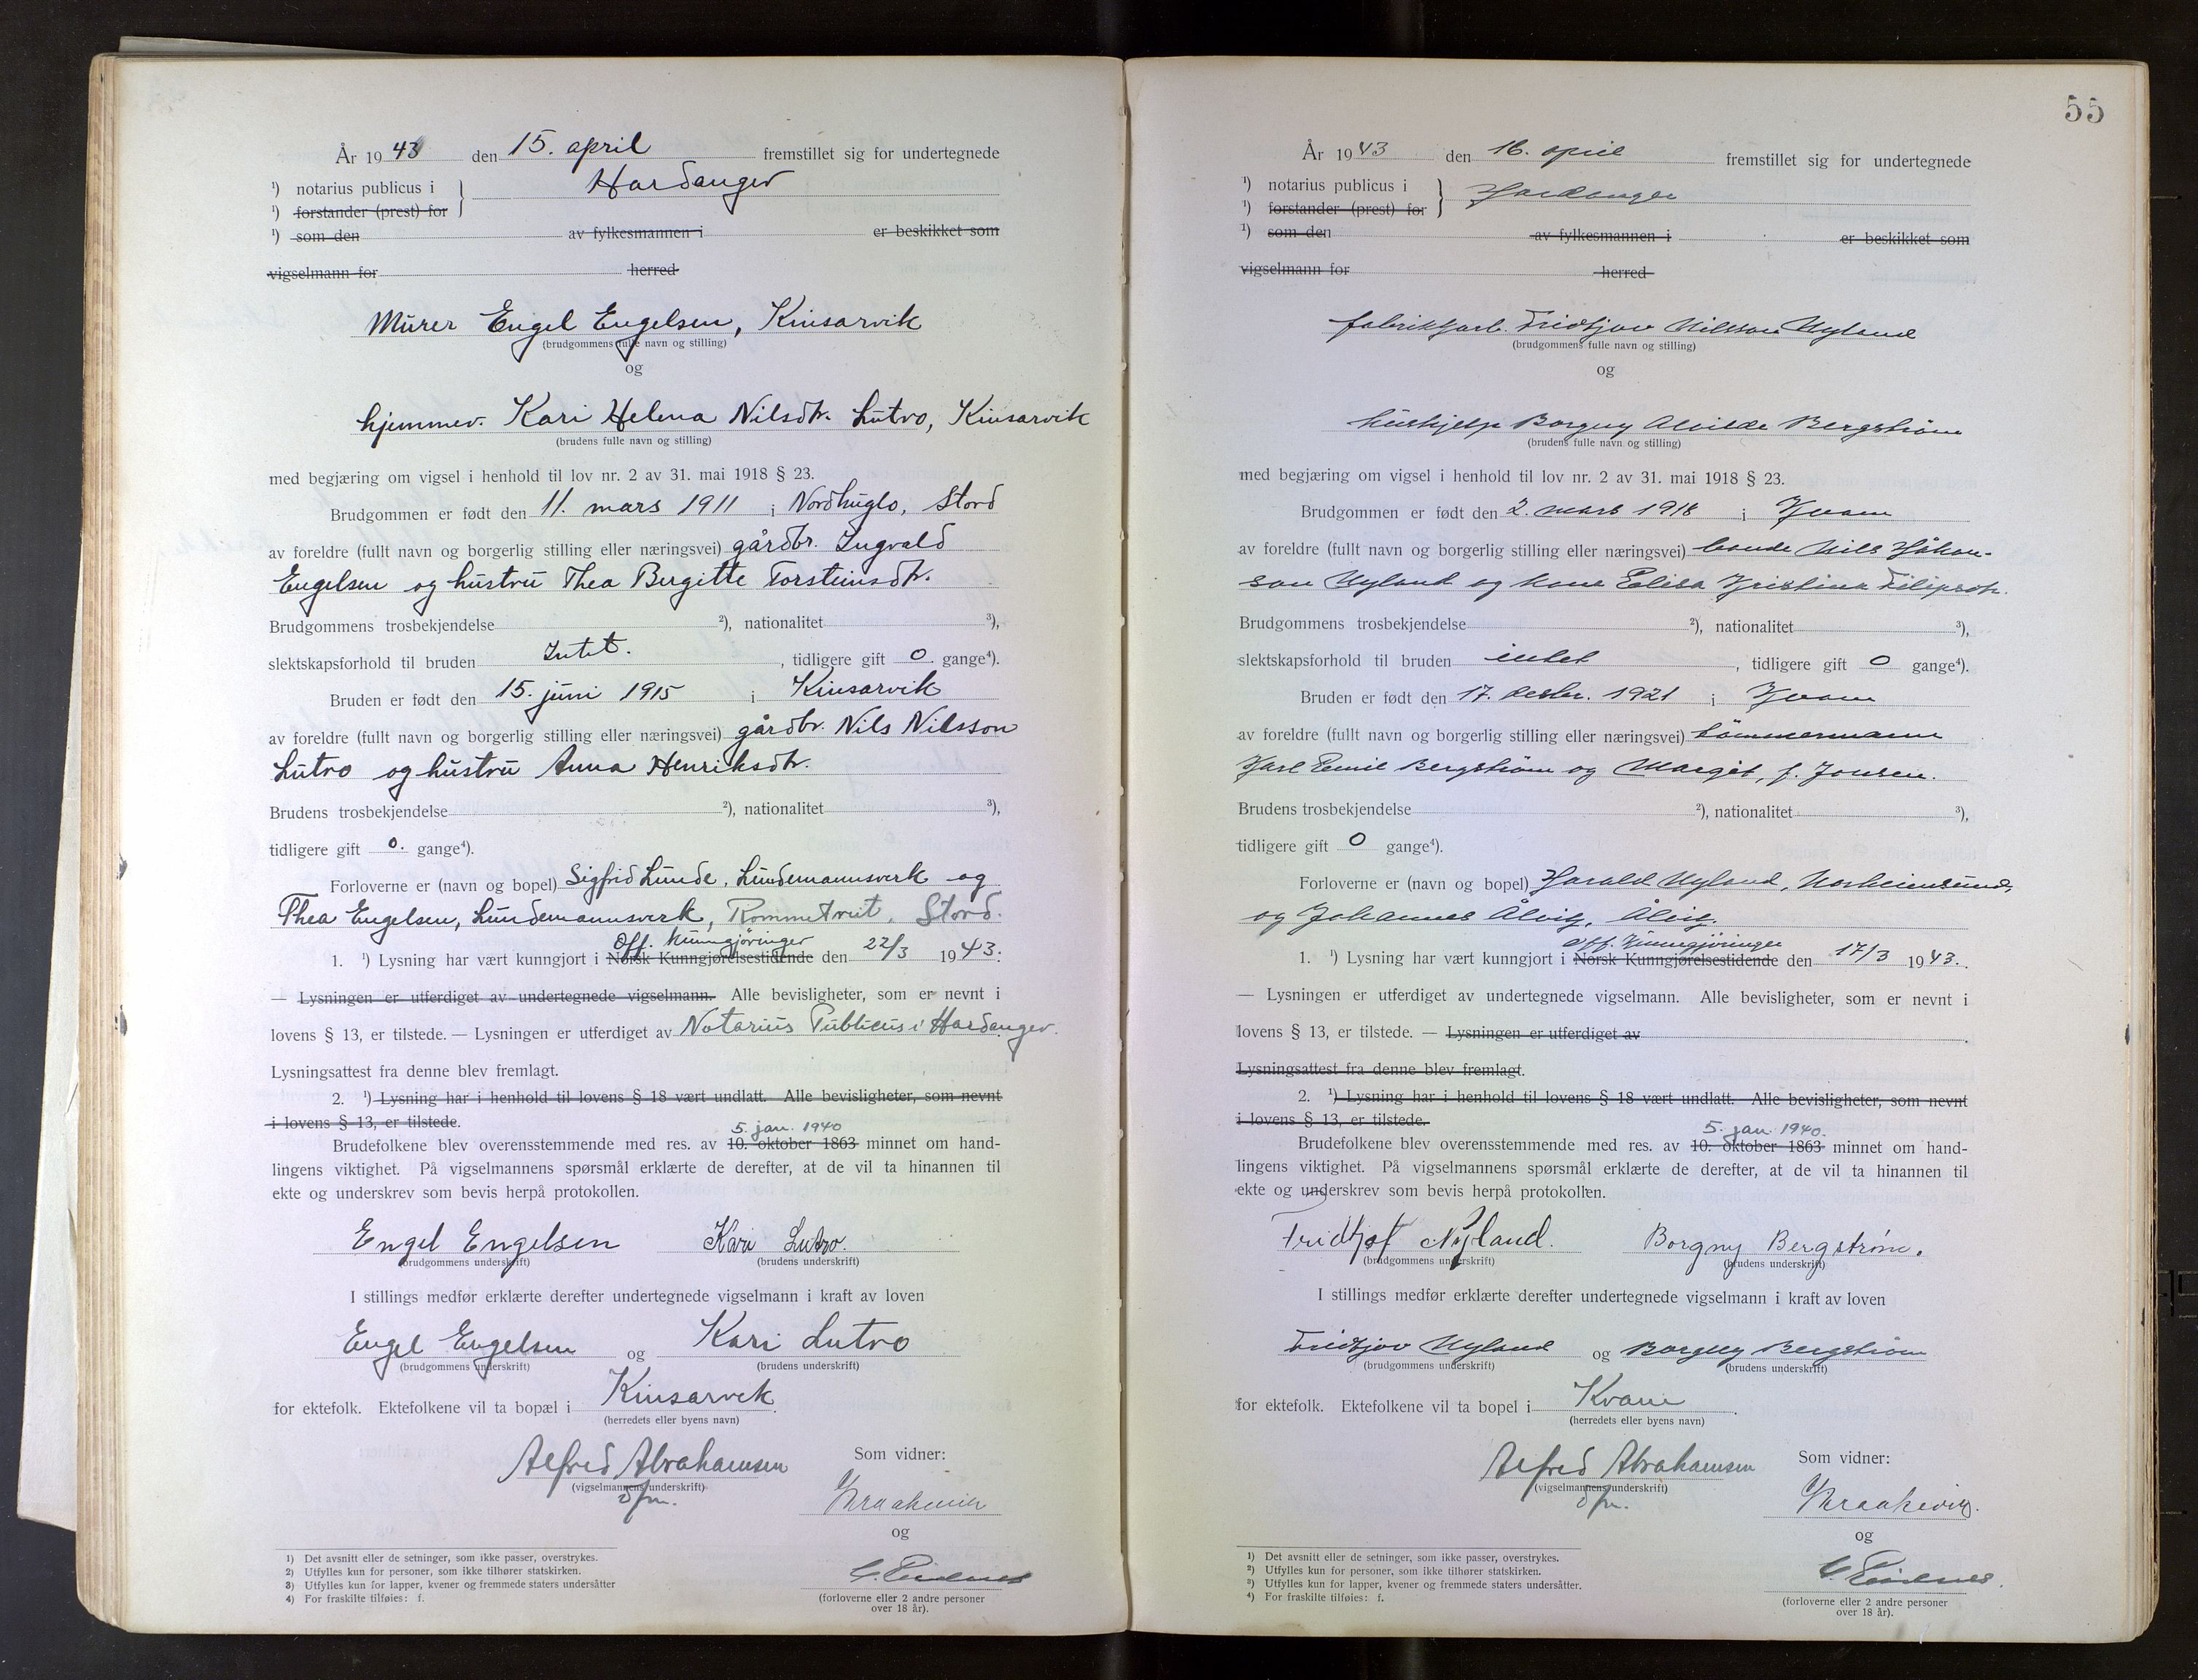 År 1943 den 15. april fremstillet sig for undertegnede
¹) notarius publicus i } Hardanger
¹) forstander (prest) for
¹) som den av fylkesmannen i er beskikket som
vigselmann for herred
Murer Engel Engelsen, Kinsarvik
(brudgommens fulle navn og stilling)
og
hjemmev. Kari Helena Nilsdtr. Lutro, Kinsarvik
(brudens fulle navn og stilling)
med begjæring om vigsel i henhold til lov nr. 2 av 31. mai 1918 § 23.
Brudgommen er født den 11. mars 1911 i Nordhuglo, Stord
av foreldre (fullt navn og borgerlig stilling eller næringsvei) gårdbr. Ingvald
Engelsen og hustru Thea Bergitte Torsteinsdtr.
Brudgommens trosbekjendelse ²), nationalitet ³),
slektskapsforhold til bruden Intet. , tidligere gift 0 gange⁴).
Bruden er født den 15. juni 1915 i Kinsarvik
av foreldre (fullt navn og borgerlig stilling eller næringsvei) gårdbr. Nils Nilsson
Lutro og hustru Anna Henriksdtr.
Brudens trosbekjendelse ²), nationalitet ³),
tidligere gift 0. gange⁴).
Forloverne er (navn og bopel) Sigfrid Lunde, Lundemannsverk og
Thea Engelsen, Lundemannsverk, Rommetveit, Stord.
off. kunngjøringer
1. ¹) Lysning har vært kunngjort i Norsk Kunngjørelsestidende den 22/3 1943.
— Lysningen er utferdiget av undertegnede vigselmann. Alle bevisligheter, som er nevnt i
lovens § 13, er tilstede. — Lysningen er utferdiget av Notarius Publicus i Hardanger.
Lysningsattest fra denne blev fremlagt.
2. ¹) Lysning har i henhold til lovens § 18 vært undlatt. Alle bevisligheter, som nevnt
i lovens § 13, er tilstede.
5. jan. 1940
Brudefolkene blev overensstemmende med res. av 10. oktober 1863 minnet om hand-
lingens viktighet. På vigselmannens spørsmål erklærte de derefter, at de vil ta hinannen til
ekte og underskrev som bevis herpå protokollen.
Engel Engelsen Kari Lutro.
(brudgommens underskrift) (brudens underskrift)
I stillings medfør erklærte derefter undertegnede vigselmann i kraft av loven
Engel Engelsen og Kari Lutro
(brudgommens underskrift) (brudens underskrift)
for ektefolk. Ektefolkene vil ta bopæl i Kinsarvik.
(herredets eller byens navn)
Alfred Abrahamsen Som vidner:
(vigselmannens underskrift)
dfm.
og
(forloverne eller 2 andre personer
over 18 år).
1) Det avsnitt eller de setninger, som ikke passer, overstrykes.
2) Utfylles kun for personer, som ikke tilhører statskirken.
3) Utfylles kun for lapper, kvener og fremmede staters undersåtter
4) For fraskilte tilføies: f.
55
År 1943 den 16. april fremstillet sig for undertegnede
¹) notarius publicus i } Hardanger
¹) forstander (prest) for
¹) som den av fylkesmannen i er beskikket som
vigselmann for herred
fabrikkarb. Fridtjov Nilsson Nyland
(brudgommens fulle navn og stilling)
og
hushjelp Borgny Alvilde Bergstrøm
(brudens fulle navn og stilling)
med begjæring om vigsel i henhold til lov nr. 2 av 31. mai 1918 § 23.
Brudgommen er født den 2. mars 1918 i Kvam
av foreldre (fullt navn og borgerlig stilling eller næringsvei) bonde Nils Håkon-
son Nyland og kone Elisa Kristina Filipsdtr.
Brudgommens trosbekjendelse ²), nationalitet ³),
slektskapsforhold til bruden intet , tidligere gift 0 gange⁴).
Bruden er født den 17. desbr. 1921 i Kvam
av foreldre (fullt navn og borgerlig stilling eller næringsvei) tømmermann
Karl Emil Bergstrøm og Margit, f. Jonsen.
Brudens trosbekjendelse ²), nationalitet ³),
tidligere gift 0 gange⁴).
Forloverne er (navn og bopel) Harald Nyland, Norheimsund,
og Johannes Ålvig, Ålvig.
off. Kunngjøringer
1. ¹) Lysning har vært kunngjort i Norsk Kunngjørelsestidende den 17/3 1943.
— Lysningen er utferdiget av undertegnede vigselmann. Alle bevisligheter, som er nevnt i
lovens § 13, er tilstede. — Lysningen er utferdiget av
Lysningsattest fra denne blev fremlagt.
2. ¹) Lysning har i henhold til lovens § 18 vært undlatt. Alle bevisligheter, som nevnt
i lovens § 13, er tilstede.
5. jan. 1940.
Brudefolkene blev overensstemmende med res. av 10. oktober 1863 minnet om hand-
lingens viktighet. På vigselmannens spørsmål erklærte de derefter, at de vil ta hinannen til
ekte og underskrev som bevis herpå protokollen.
Fridtjof Nyland. Borgny Bergstrøm.
(brudgommens underskrift) (brudens underskrift)
I stillings medfør erklærte derefter undertegnede vigselmann i kraft av loven
Fridtjov Nyland og Borgny Bergstrøm
(brudgommens underskrift) (brudens underskrift)
for ektefolk. Ektefolkene vil ta bopel i Kvam.
(herredets eller byens navn)
Alfred Abrahamsen Som vidner:
(vigselmannens underskrift)
dfm.
og
(forloverne eller 2 andre personer
over 18 år).
1) Det avsnitt eller de setninger, som ikke passer, overstrykes.
2) Utfylles kun for personer, som ikke tilhører statskirken.
3) Utfylles kun for lapper, kvener og fremmede staters undersåtter.
4) For fraskilte tilføies: f.